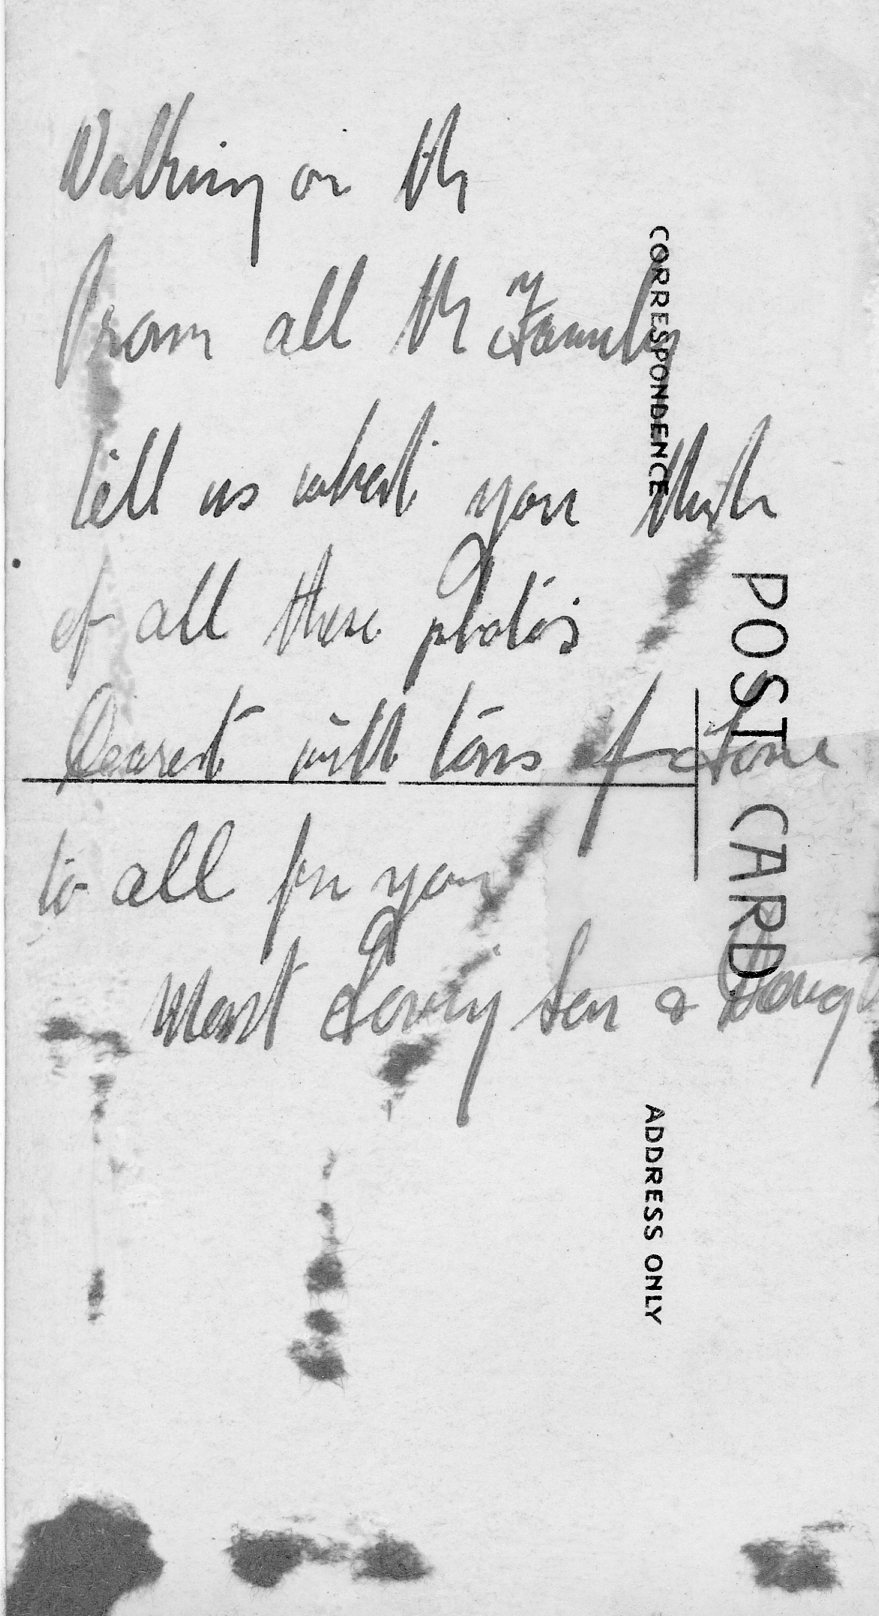 Walking on th
From all th Family
tell us what you think
of all these photos
Dearest with tons of Love
to all for you
Most Loving Son & Daught
CORRESPONDENCE
POST CARD
ADDRESS ONLY